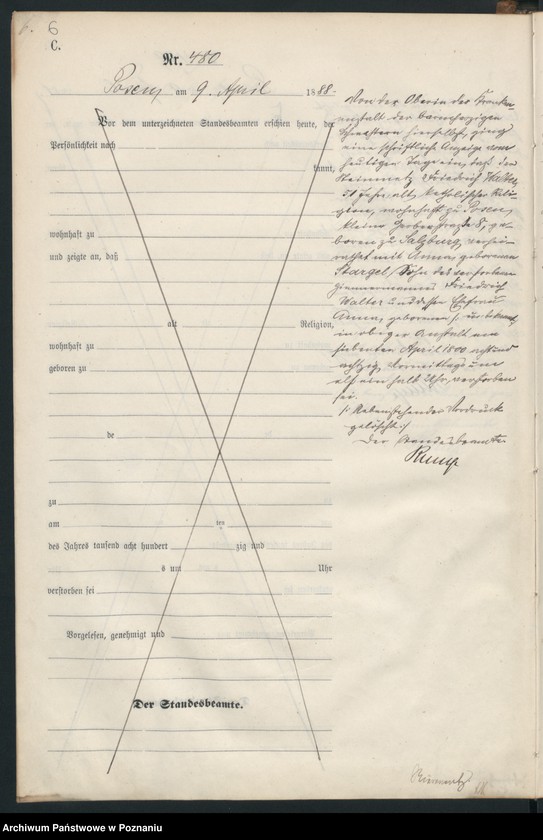 6
C.
Nr. 480
Posen am 9. April 1888.
Vor dem unterzeichneten Standesbeamten erschien heute, der
Persönlichkeit nach
kannt,
wohnhaft zu
und zeigte an, daß
alt Religion,
wohnhaft zu
geboren zu
de
zu
am ten
des Jahres tausend acht hundert zig und
s um Uhr
verstorben sei
Vorgelesen, genehmigt und
Der Standesbeamte.
Von der Oberin der Kranken-
anstalt der barmherzigen
Schwestern hierselbst, ging
eine schriftliche Anzeige vom
heutigen Tage ein, daß der
Steinmetz Friedrich Walter,
51 Jahre alt, katholischer Reli-
gion, wohnhaft zu Posen,
kleine Gerberstraße 8, ge-
boren zu Salzburg, verhei-
rathet mit Anna, geborenen
Stargel, Sohn des verstorbenen
Zimmermanns Friedrich
Walter und dessen Ehefrau
Anna, geborenen /: unbekannt,
in obiger Anstalt am
siebenten April 1800 acht und
achtzig, Vormittags um
elf ein halb Uhr, verstorben
sei.
/: Nebenstehender Vordruck
gelöscht :/
Der Standesbeamte
Archiwum Państwowe w Poznaniu